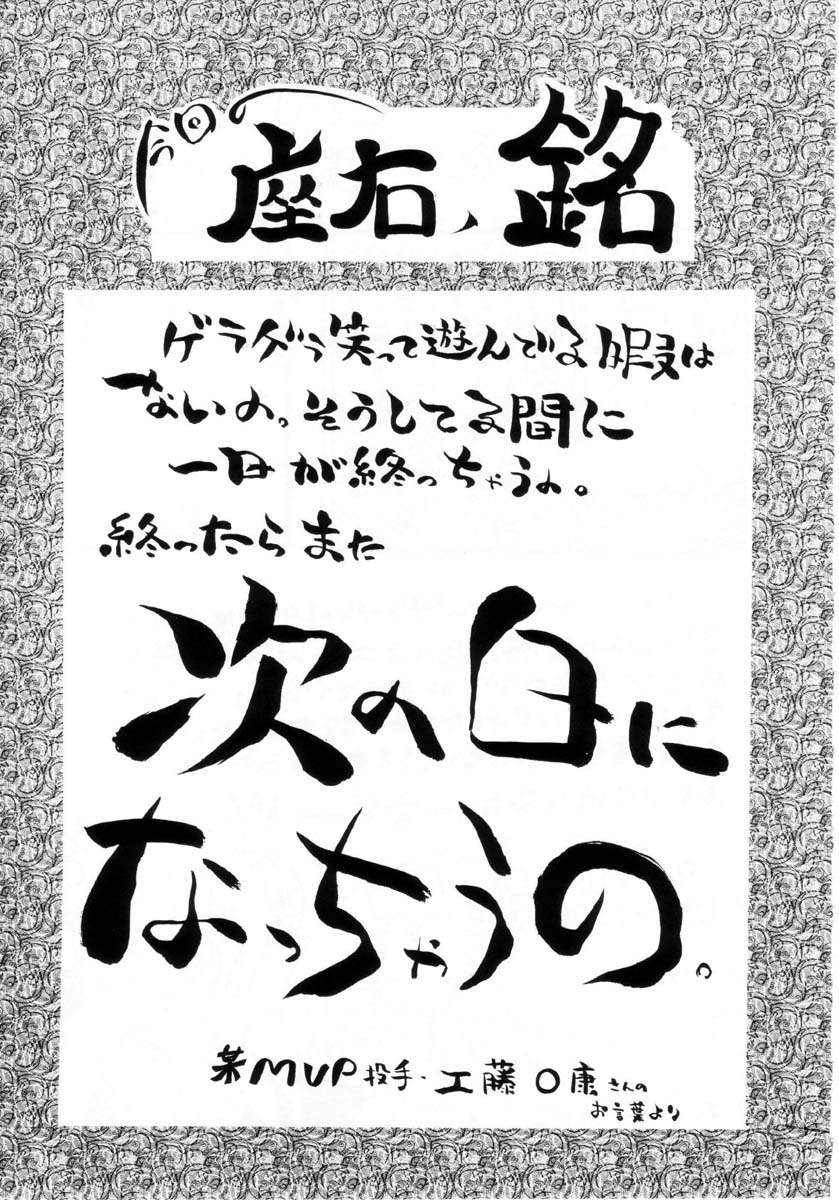 座右ノ銘
ゲラゲラ笑って遊んでる暇は
ないの。そうしてる間に
一日が終っちゃうの。
終ったらまた
次の日に
なっちゃうの。
某MVP投手・工藤○康さんの
お言葉より